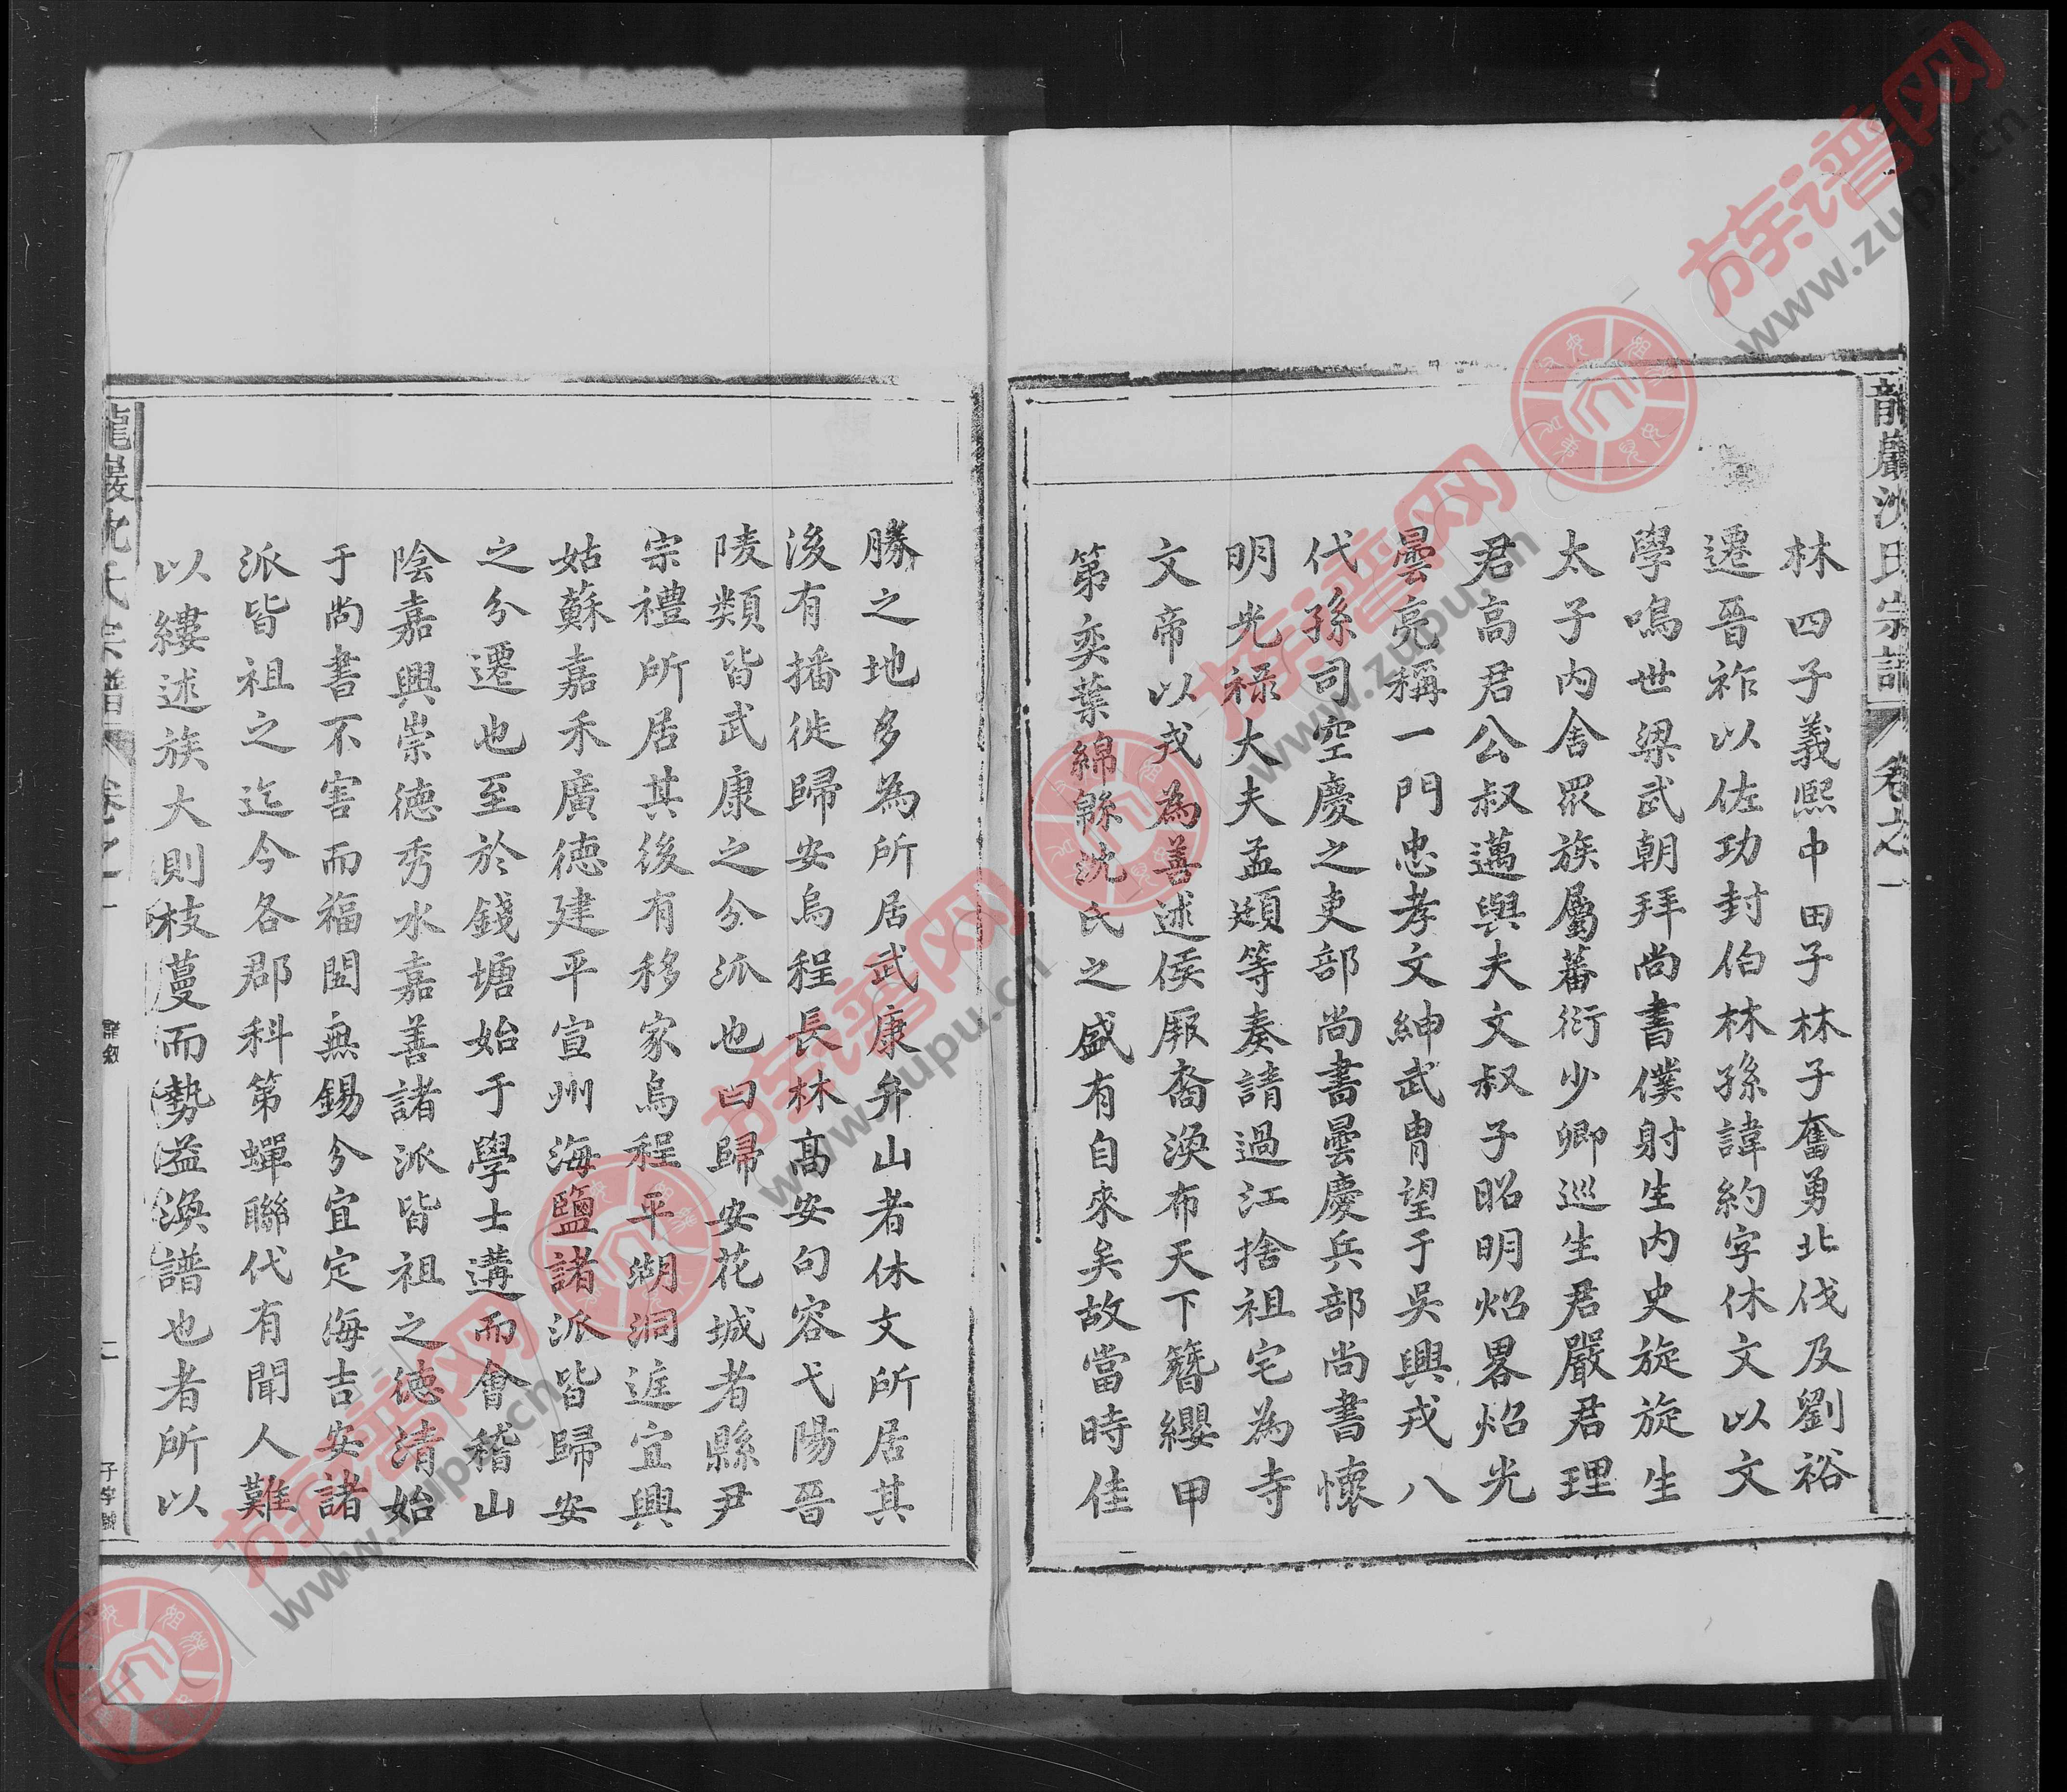 龍巖沈氏宗譜 卷之一
林四子義熙中田子林子奮勇北伐及劉裕
遷晉祚以佐功封伯林孫諱約字休文以文
學鳴世梁武朝拜尚書僕射生內史旋旋生
太子內舍眾族屬蕃衍少卿巡生君嚴君理
君高君公叔邁與夫文叔子子昭明炤畧炤光
曇亮稱一門忠孝文紳武胄望于吳興戎八
代孫司空慶之吏部尚書曇慶兵部尚書懷
明光祿大夫孟顗等奏請過江捨祖宅為寺
文帝以戎為善述侯厥裔渙布天下簪纓甲
第奕葉綿緜沈氏之盛有自來矣故當時佳
勝之地多為所居武康弁山者休文所居其
後有播徙歸安烏程長林高安句容弋陽晉
陵類皆武康之分派也曰歸安花城者縣尹
宗禮所居其後有移家烏程平湖洞庭宜興
姑蘇嘉禾廣德建平宣州海鹽諸派皆歸安
之分遷也至於錢塘始于學士遘而會稽山
陰嘉興崇德秀水嘉善諸派皆祖之德清始
于尚書不害而福閩無錫分宜定海吉安諸
派皆祖之迄今各郡科第蟬聯代有聞人難
以縷述族大則枝蔓而勢益渙譜也者所以
龍巖沈氏宗譜 卷之一 二
族谱网
www.zupu.cn
族谱网
www.zupu.cn
族谱网
www.zupu.cn
族谱网
www.zupu.cn